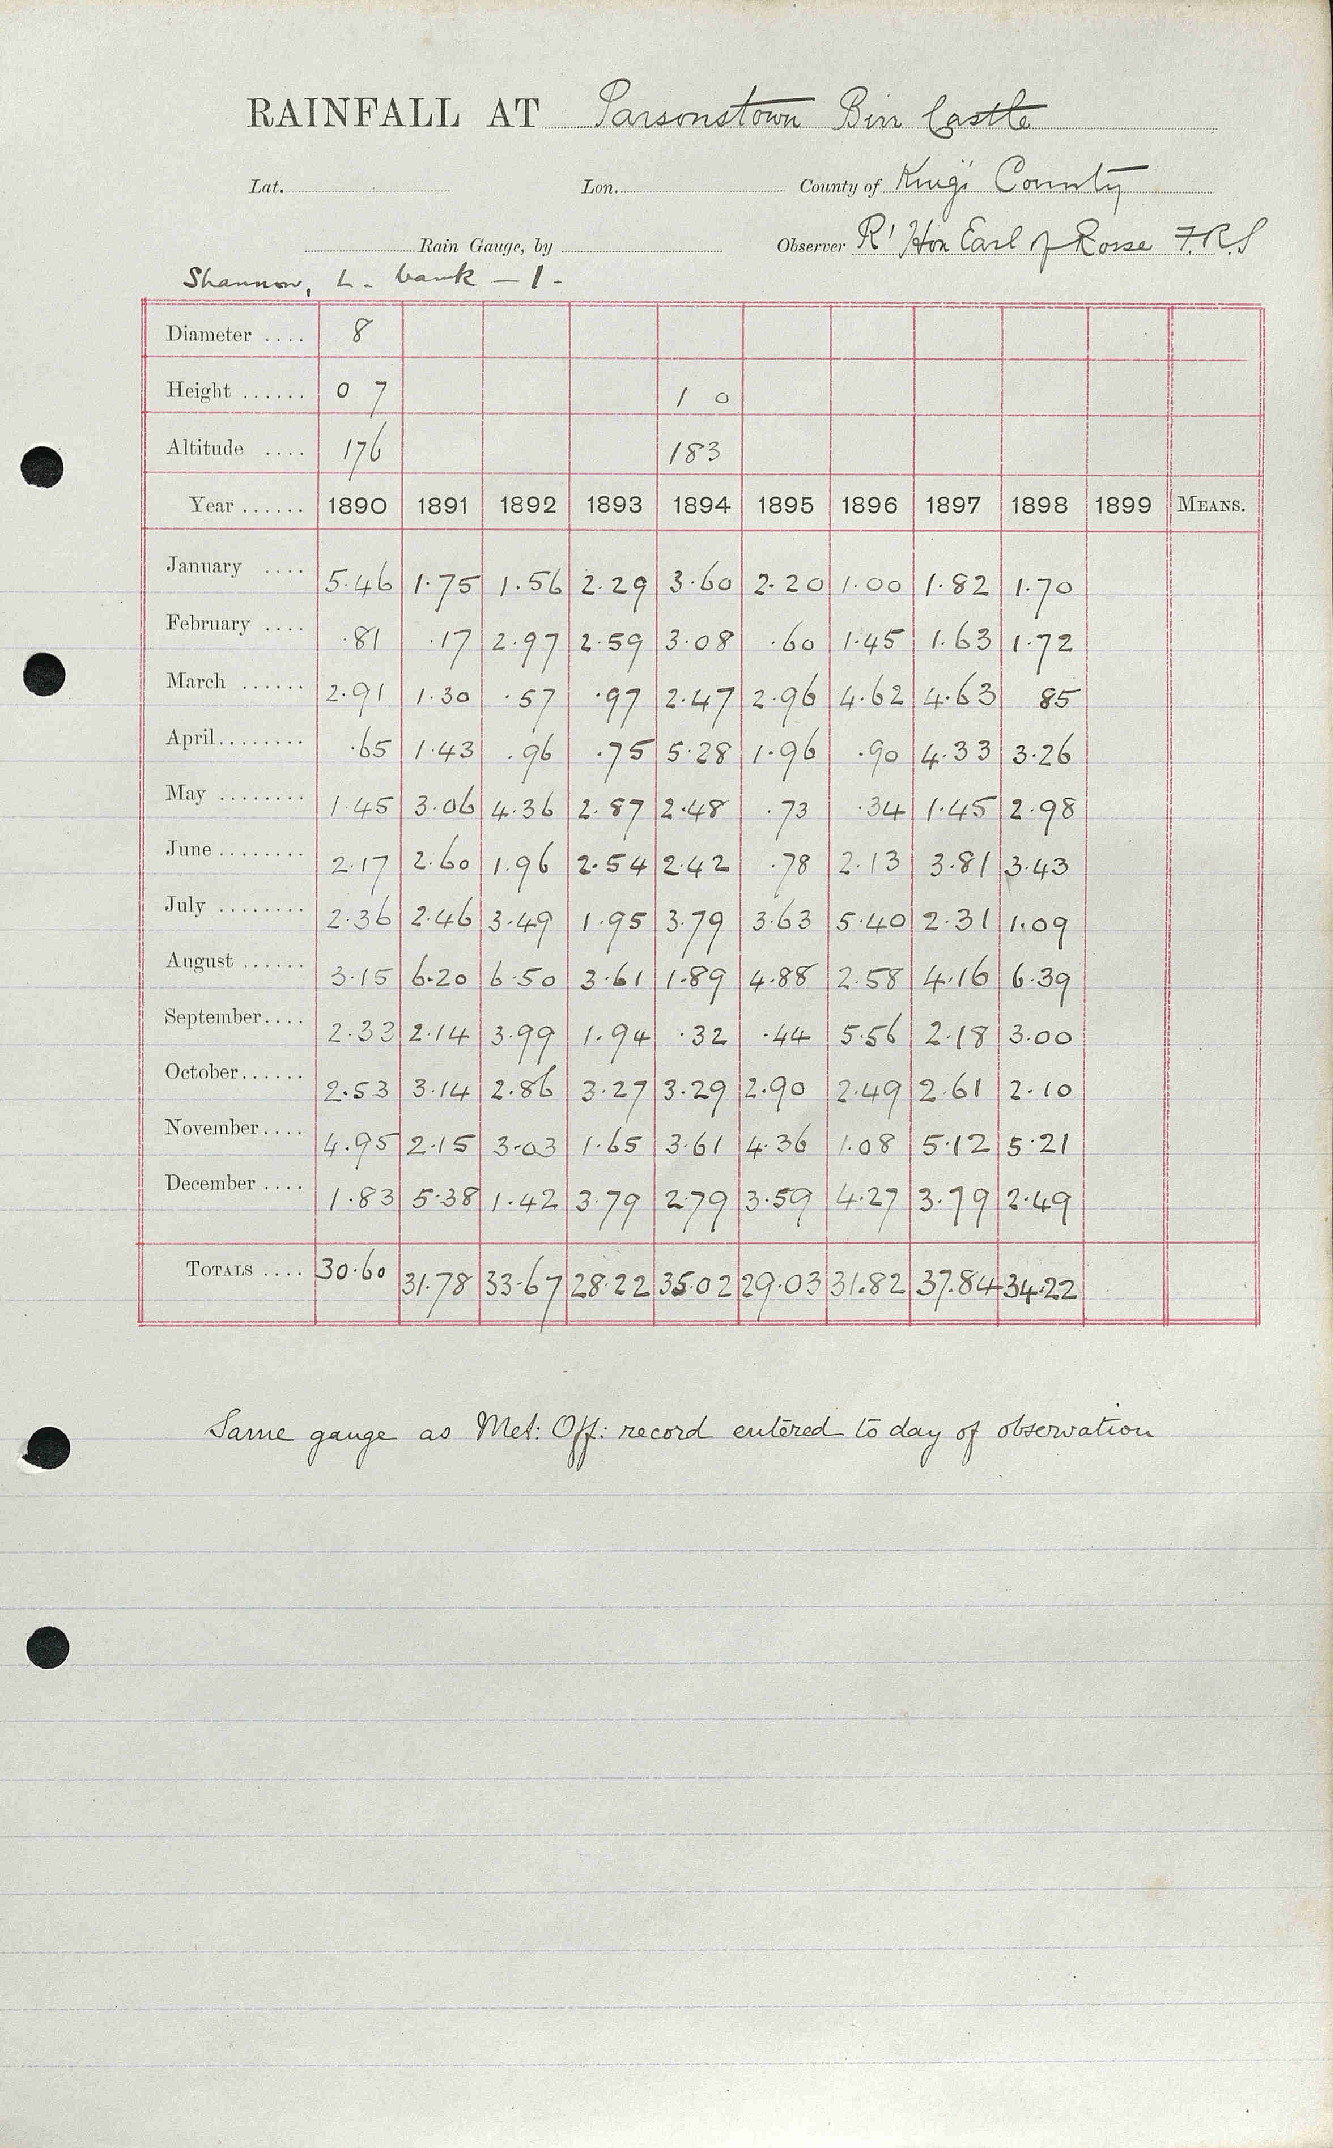 RAINFALL AT Parsonstown Birr Castle
Lat. Lon. County of King's County
Rain Gauge, by Observer Rt Hon Earl of Rosse F.R.S
Shannon, L. bank — 1 -
Diameter .... 8
Height ...... 0 7 1 0
Altitude .... 176 183
Year ...... 1890 1891 1892 1893 1894 1895 1896 1897 1898 1899 MEANS.
January .... 5.46 1.75 1.56 2.29 3.60 2.20 1.00 1.82 1.70
February .... .81 .17 2.97 2.59 3.08 .60 1.45 1.63 1.72
March ...... 2.91 1.30 .57 .97 2.47 2.96 4.62 4.63 85
April........ .65 1.43 .96 .75 5.28 1.96 .90 4.33 3.26
May ........ 1.45 3.06 4.36 2.87 2.48 .73 .34 1.45 2.98
June ........ 2.17 2.60 1.96 2.54 2.42 .78 2.13 3.81 3.43
July ........ 2.36 2.46 3.49 1.95 3.79 3.63 5.40 2.31 1.09
August ...... 3.15 6.20 6.50 3.61 1.89 4.88 2.58 4.16 6.39
September.... 2.33 2.14 3.99 1.94 .32 .44 5.56 2.18 3.00
October...... 2.53 3.14 2.86 3.27 3.29 2.90 2.49 2.61 2.10
November.... 4.95 2.15 3.03 1.65 3.61 4.36 1.08 5.12 5.21
December .... 1.83 5.38 1.42 3.79 2.79 3.59 4.27 3.79 2.49
TOTALS .... 30.60 31.78 33.67 28.22 35.02 29.03 31.82 37.84 34.22
Same gauge as Met: Off: record entered to day of observation